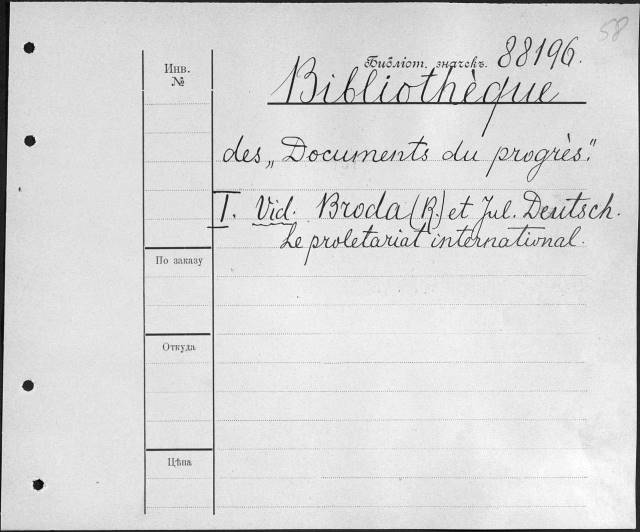 58
Библіот. значекъ. 88196.
Инв. №
Bibliothèque
des „Documents du progrès."
I. Vid. Broda (R.) et Jul. Deutsch.
Le proletariat international.
По заказу
Откуда
Цѣна